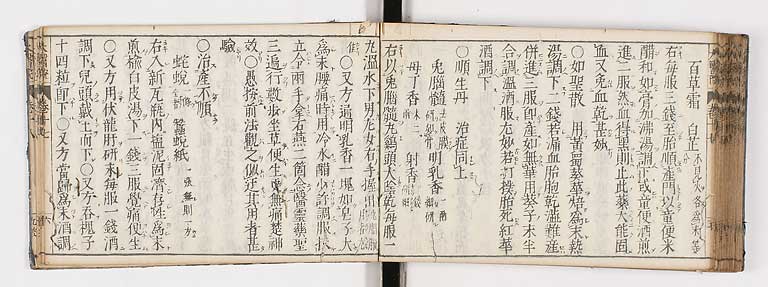 百草霜 白芷 不見火 各為末等
右每服三錢至胎順產門以童便米
醋和如膏加沸湯調下或童便酒煎
進二服然血得黑則止此藥大能固
血又免血乾甚妙
○如聖散 用黃蜀葵花焙為末熱
湯調下二錢若漏血胎胞乾澁難產
併進三服即產如無花用葵子末半
合調溫酒服尤妙若打撲胎死紅花
酒調下
○順生丹 治症同上
兔腦髓 明乳香
母丁香 射香
右以兔腦髓丸雞頭大陰乾每服一
丸溫水下男左女右手握出
○又方通明乳香一塊如皂子大
為末腰痛時用冷水醋少許調服扶
立令兩手拿石燕二箇念醫靈藥聖
三遍行數步坐草便生更無痛楚神
效○愚按前法觀之似迂其用者甚
驗
○治產不順
蛇蛻 蠶蛻紙 一張無則一方
右入新瓦瓶內鹽泥固濟存性為末
煎榆白皮湯下一錢三服覺痛便生
○又方用伏龍肝研末每服一錢酒
調下兒頭戴土而下○又方吞槐子
十四粒即下○又方當歸為末酒調